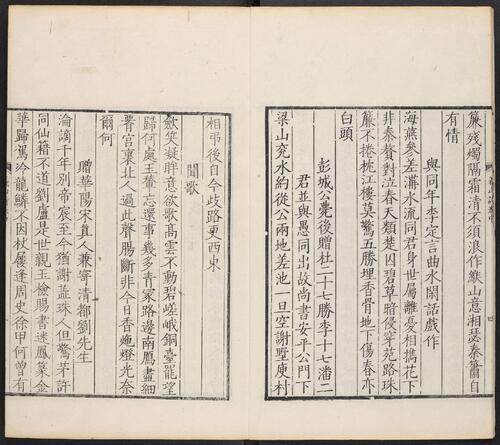 簾残燭隔霜清不須浪作緱山意湘瑟秦簫自
有情
與同年李定言曲水閑話戲作
海燕參差溝水流同君身世屬離憂相攜花下
非秦贅對泣春天類楚囚碧草暗侵穿苑路珠
簾不捲枕江樓莫驚五勝埋香骨地下傷春亦
白頭
彭城公薨後贈杜二十七勝李十七潘二
君並與愚同出故尚書安平公門下
梁山兖水約從公兩地差池一旦空謝墅庾村
相弔後自今歧路更西東
聞歌
斂笑凝眸意欲歌高雲不動碧嵯峨銅臺罷望
歸何處玉輦忘還事幾多青冢路邊南鴈盡細
腰宮裏北人過此聲腸斷非今日香灺燈光奈
爾何
贈華陽宋真人兼寄清都劉先生
淪謫千年別帝宸至今猶謝蕊珠人但驚茅許
同仙籍不道劉盧是世親玉檢賜書迷鳳篆金
華歸駕冷龍鱗不因杖屨逢周史徐甲何曾有